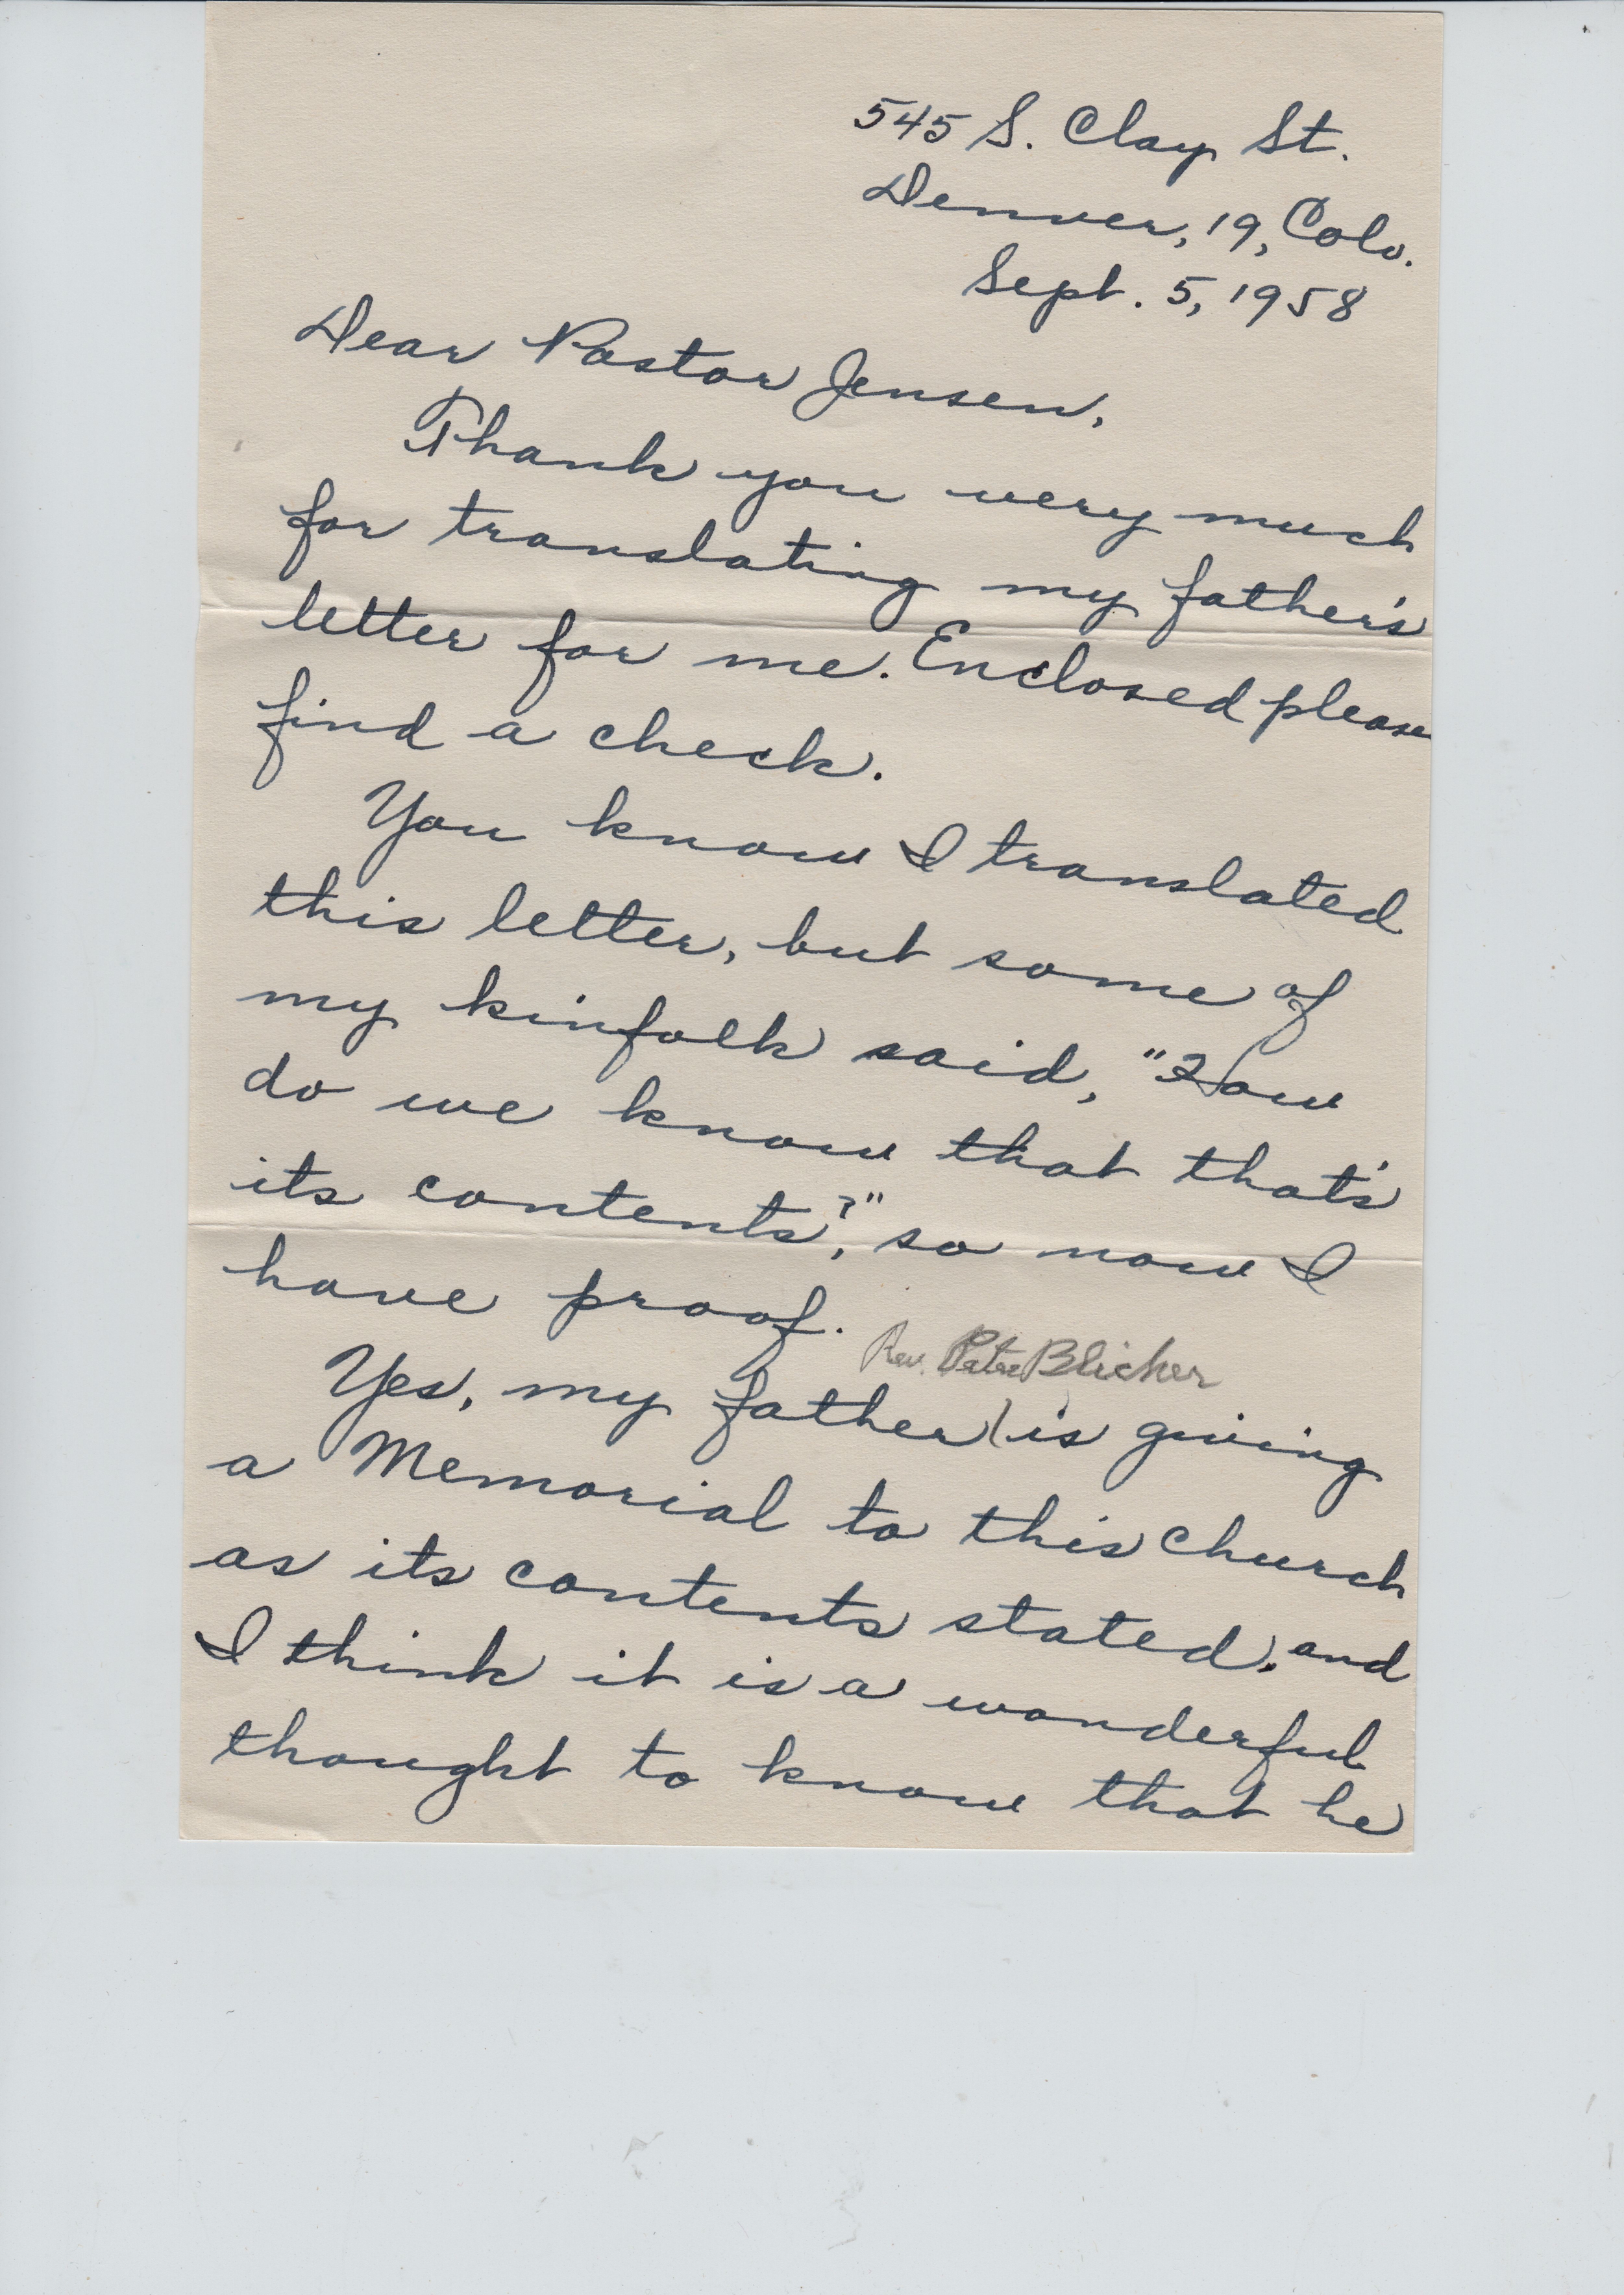 545 S. Clay St.
Denver, 19, Colo.
Sept. 5, 1958
Dear Pastor Jensen,
Thank you very much
for translating my father's
letter for me. Enclosed please
find a check.
You know I translated
this letter, but some of
my kinfolk said, "How
do we know that that's
its contents?", so now I
have proof.
Rev. Peter Blicher
Yes, my father is giving
a Memorial to this church
as its contents stated, and
I think it is a wonderful
thought to know that he